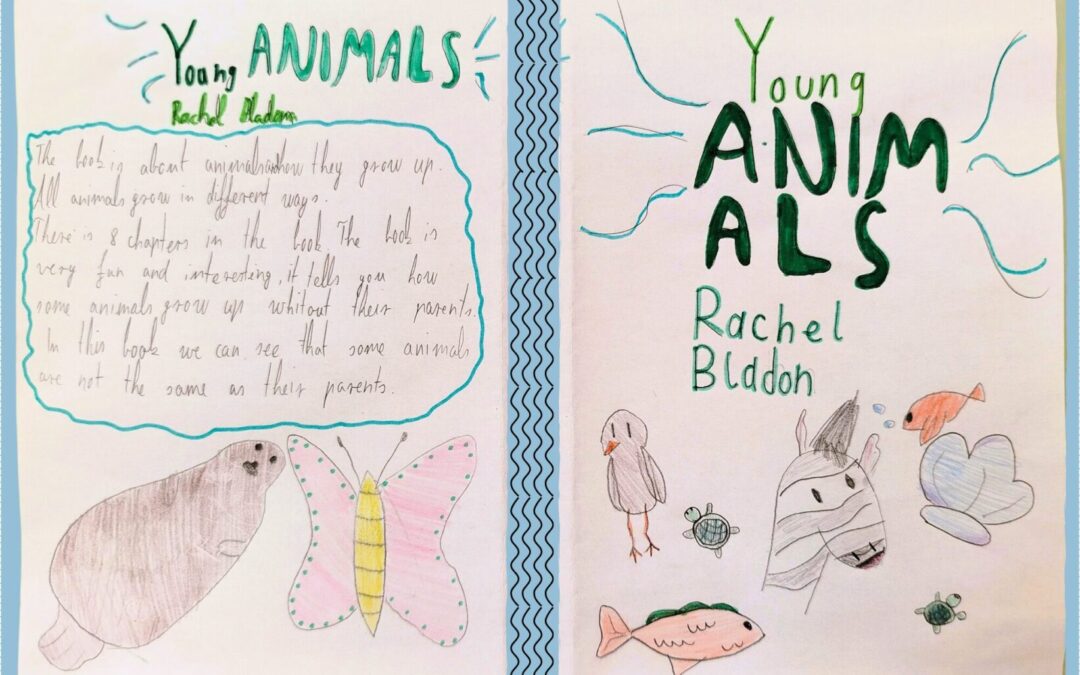 Young ANIMALS
Rachel Bladon
The book is about animals and how they grow up.
All animals grow in different ways.
There is 8 chapters in the book. The book is
very fun and interesting, it tells you how
some animals grow up whitout their parents.
In this book we can see that some animals
are not the same as their parents.
Young
ANIM
ALS
Rachel
Blddon